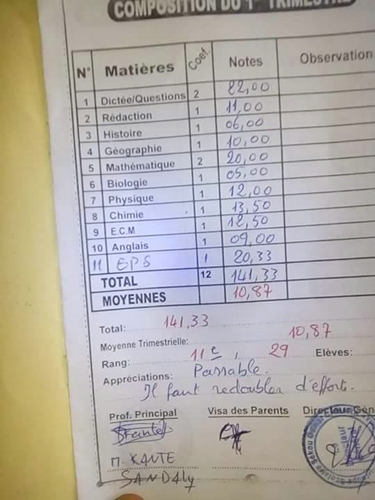 COMPOSITION DU 1er TRIMESTRE
N° Matières Coef. Notes Observation
1 Dictée/Questions 2 22,00
2 Rédaction 1 11,00
3 Histoire 1 06,00
4 Géographie 1 10,00
5 Mathématique 2 20,00
6 Biologie 1 05,00
7 Physique 1 12,00
8 Chimie 1 13,50
9 E.C.M 1 12,50
10 Anglais 1 09,00
11 EPS 1 20,33
TOTAL 12 141,33
MOYENNES 10,87
Total: 141,33
Moyenne Trimestrielle: 10,87
Rang: 11e , 29 Elèves:
Appréciations: Passable.
Il faut redoubler d'effort.
Prof. Principal Visa des Parents Directeur Gén
M. KANTE
SANDALY